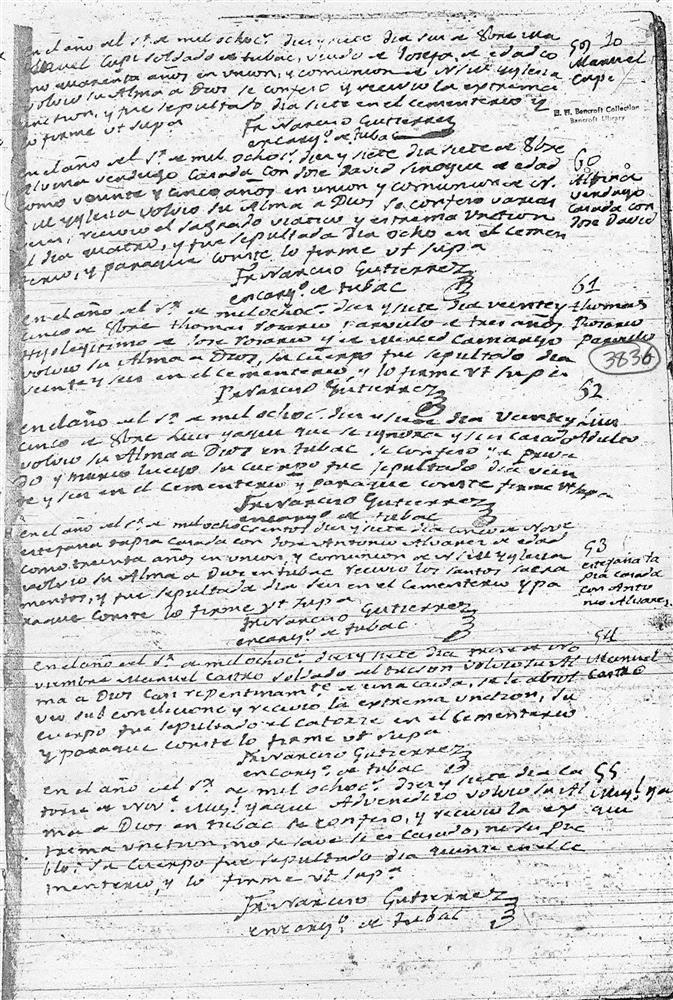 en el año del Sr. de mil ochoc.s diez y siete dia seis de 8bre Ma
nuel Cupi soldado de tubac, viudo de Josefa, de edad co
mo quarenta años en union, y comunion de N. S. M. Yglesia
volvio su Alma a Dios se confeso y recivio la extrema
unction, y fue sepultado dia siete en el cementerio y
lo firme vt supa
59 10
Manuel
Cupi
H. H. Bancroft Collection
Bancroft Library
Fr Narciso Gutierrez
encarg.o de tubac
en el año del Sr. de mil ochoc.s diez y siete dia siete de 8bre
Alvina verdugo Casada con Jose David de edad
como veinte y cinco años en union y comunion de N.
S. M. Yglesia volvio su Alma a Dios se confeso varias
veces, recivio el sagrado viatico y extrema vnction
el dia quatro, y fue sepultada dia ocho en el cemen
terio, y paraque conste lo firme vt supa
60
Albina
verdugo
Casada con
Jose David
Fr Narciso Gutierrez
encarg.o de tubac
en el año del Sr. de mil ochoc.s diez y siete dia veinte y
cinco de 8bre thomas Rosario Parvulo de tres años
Hijo legitimo de Jose Rosario y de Merced Camargo
volvio su Alma a Dios, su cuerpo fue sepultado dia
veinte y seis en el cementerio, y lo firme vt supa
61
thomas
Rosario
Parvulo
3836
Fr Narciso Gutierrez
en el año del Sr. de mil ochoc.s diez y siete dia veinte y
cinco de 8bre Luis yaqui que se ignora si es casado
volvio su Alma a Dios en tubac se confeso
y murio luego su cuerpo fue sepultado dia vein
te y seis en el cementerio, y paraque conste firme vt supa
62
Luis
Adulto
Fr Narciso Gutierrez
encarg.o de tubac
en el año del Sr. de mil ochocientos diez y siete dia cinco de Nove
estefana tapia casada con Jose Antonio Alvarez de edad
como treinta años en union, y comunion de N. S. M. Yglesia
volvio su Alma a Dios en tubac recivio los santos sacra
mentos, y fue sepultada dia seis en el cementerio y pa
raque conste lo firme vt supa
53
estefana ta
pia casada
con Anto
nio Alvarez
Fr Narciso Gutierrez
encarg.o de tubac
en el año del Sr. de mil ochoc.s diez y siete dia trese de No
viembre Manuel Castro soldado del Presidio volvio su Al
ma a Dios casi repentinamte de una caida, se le absol
vio sub condicione y recivio la extrema vnction, su
cuerpo fue sepultado el catorze en el cementerio
y paraque conste lo firme vt supa
54
Manuel
Castro
Fr Narciso Gutierrez
encarg.o de tubac
en el año del Sr. de mil ochoc.s diez y siete dia ca
torse de Nov.e Mig.l yaqui Advenedizo volvio su Al
ma a Dios en tubac se confeso, y recivio la ex
trema vnction, no se save si es casado, ni su pue
blo: su cuerpo fue sepultado dia quinze en el ce
menterio, y lo firme vt supa
55
Mig.l ya
qui
Fr Narciso Gutierrez
encarg.o de tubac